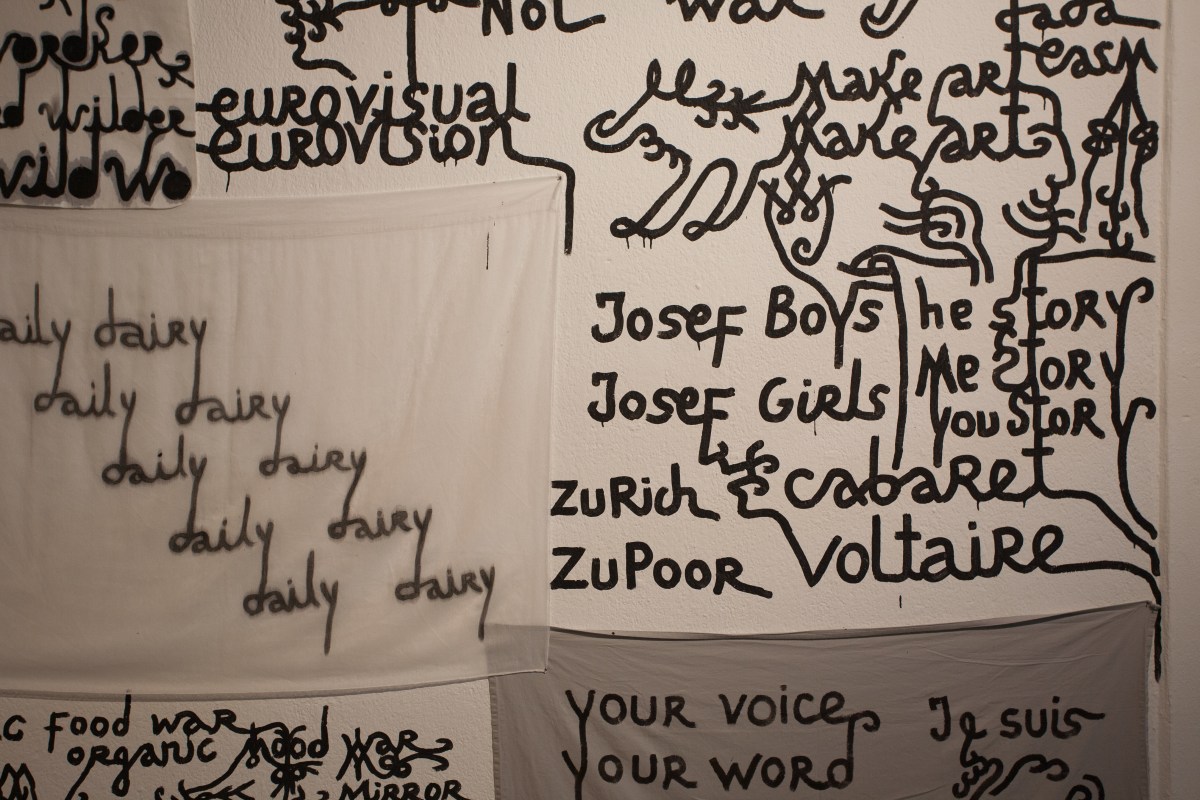 Not war
dada
easm
eurovisual
eurovision
Make art
Make art
wilder
wild wo
daily dairy
daily dairy
daily dairy
daily dairy
daily dairy
Josef Boys
Josef Girls
he story
Me Story
you Story
ZuRich
ZuPooR
cabaRet
Voltaire
food war
organic mood war
MiRROR
YOUR VOice
YOUR WORd
Je suis